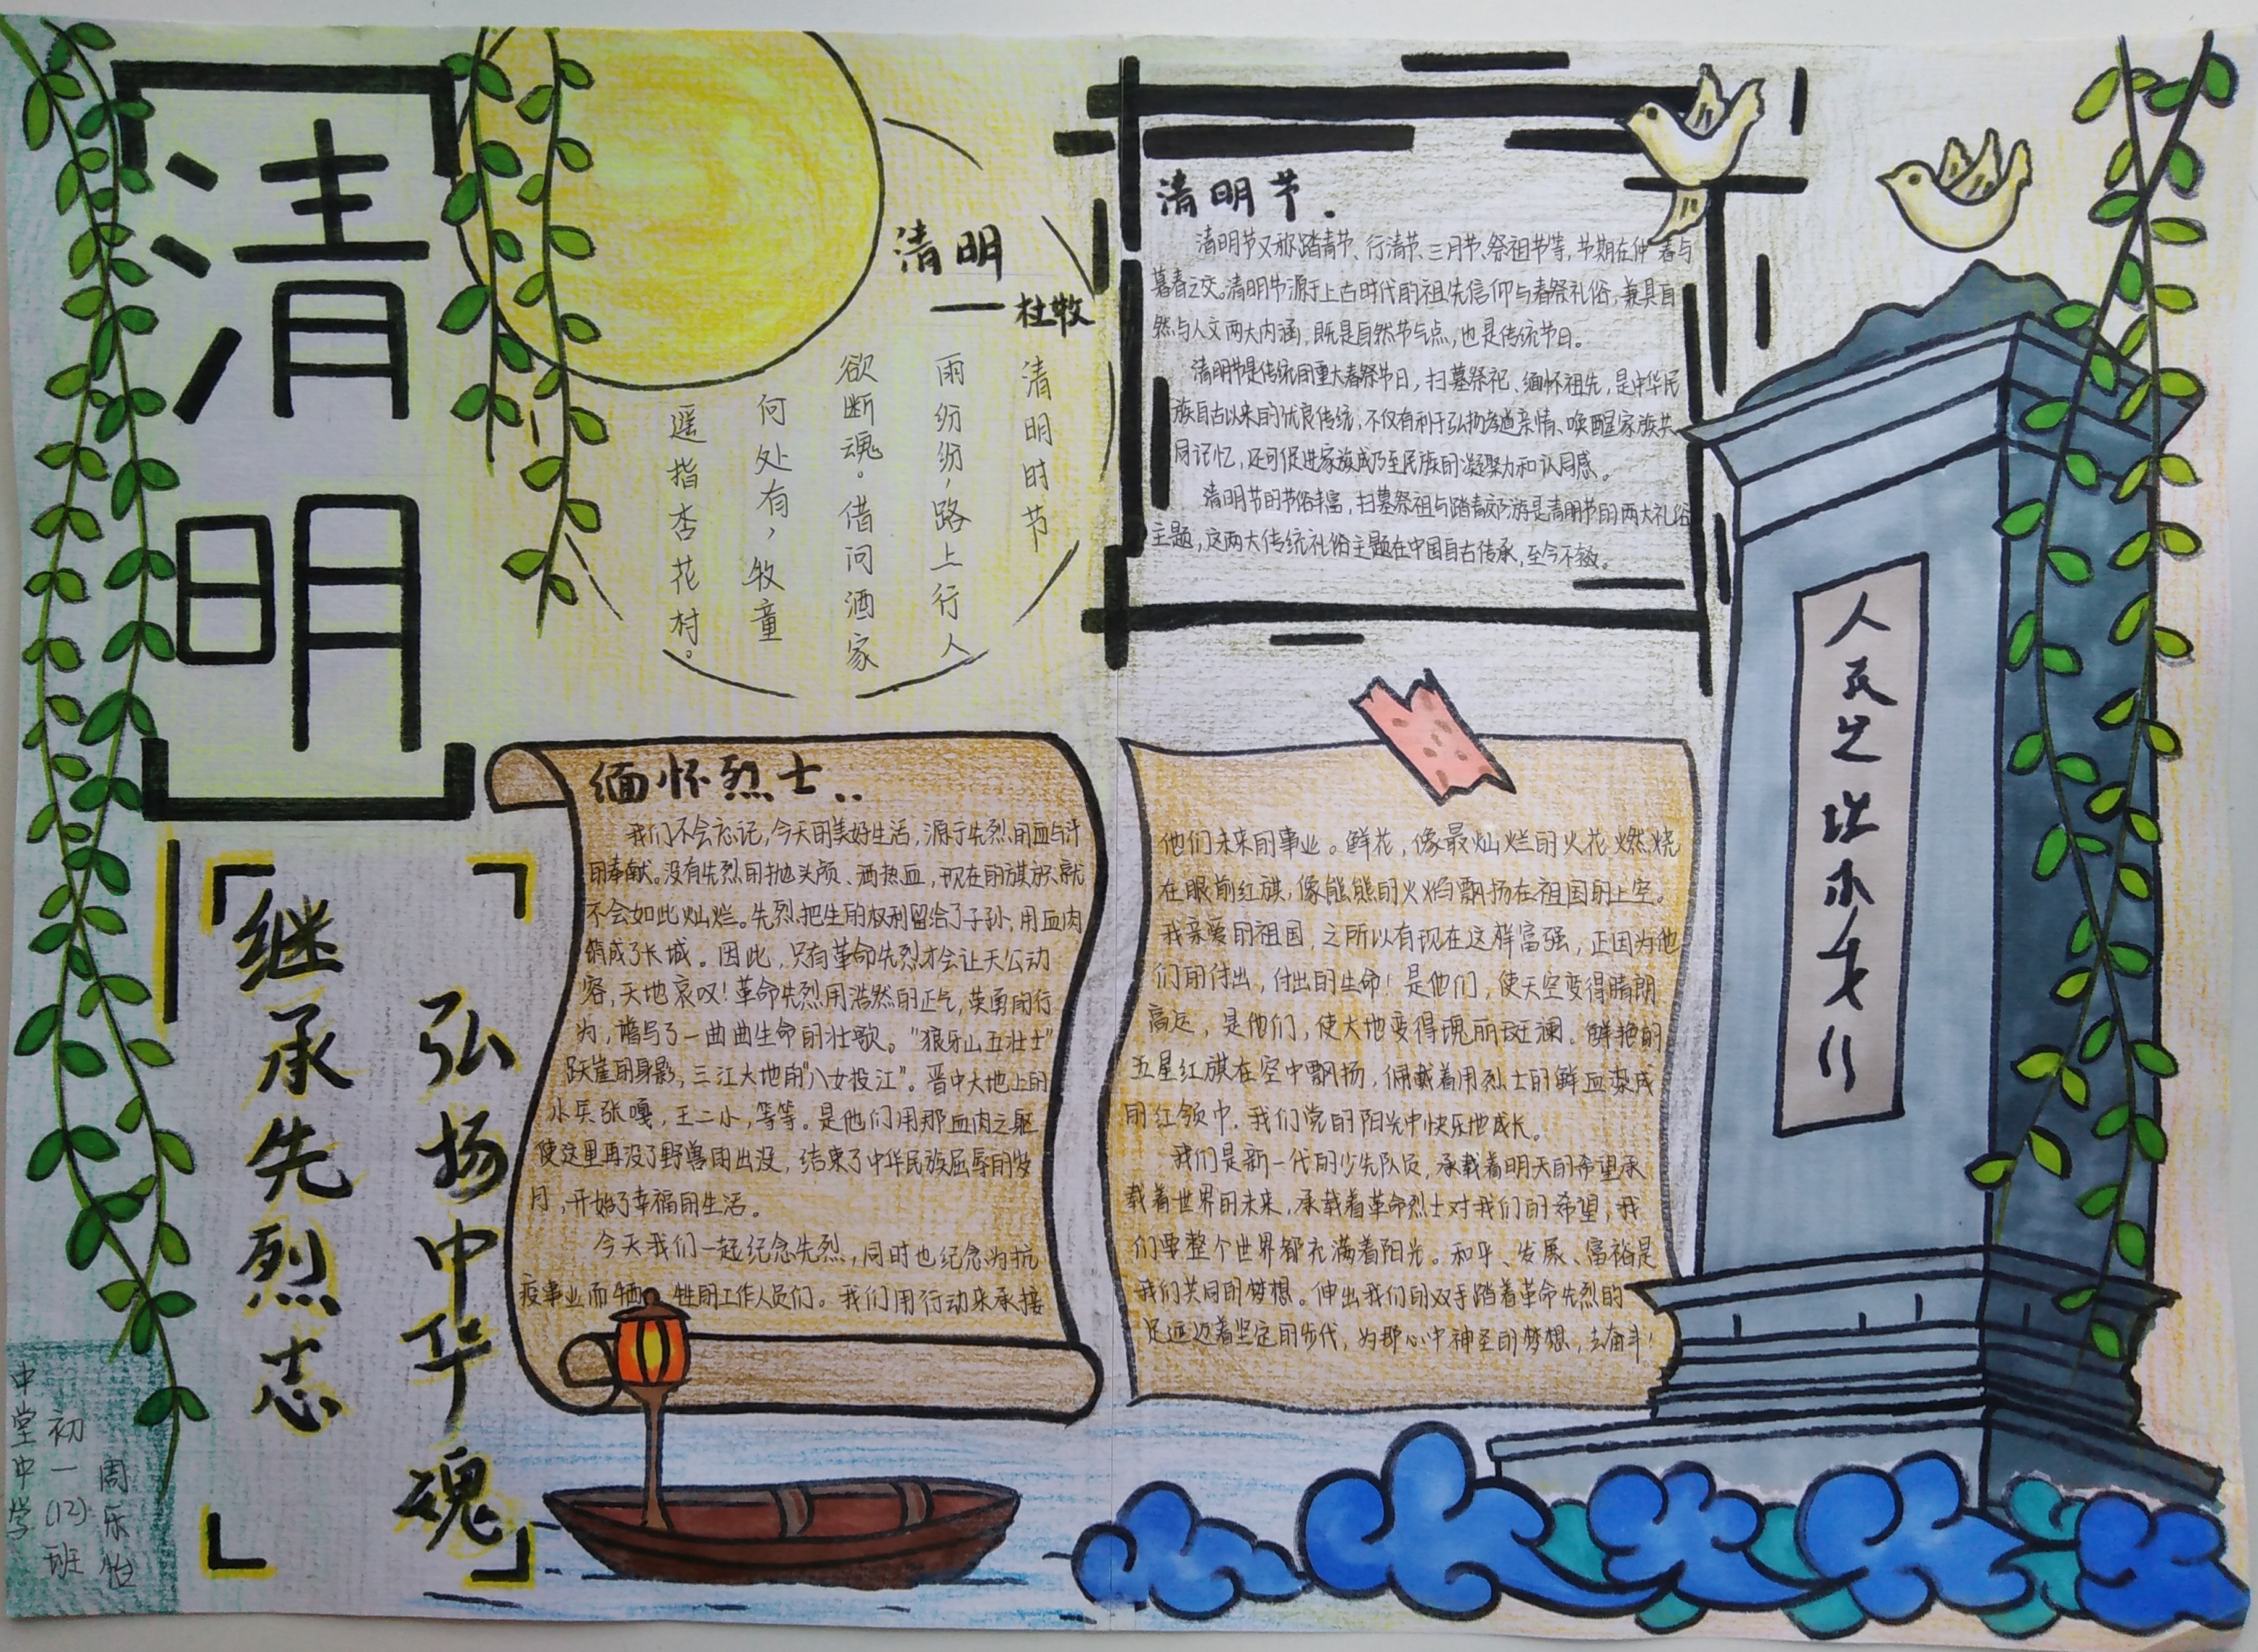 清明
清明
——杜牧
清明时节
雨纷纷,路上行人
欲断魂。借问酒家
何处有,牧童
遥指杏花村。
清明节.
清明节又称踏青节、行清节、三月节、祭祖节等,节期在仲春与
暮春之交。清明节源于上古时代的祖先信仰与春祭礼俗,兼具自
然与人文两大内涵,既是自然节气点,也是传统节日。
清明节是传统的重大春祭节日,扫墓祭祀、缅怀祖先,是中华民
族自古以来的优良传统,不仅有利于弘扬孝道亲情、唤醒家族共
同记忆,还可促进家族成乃至民族的凝聚力和认同感。
清明节的节俗丰富,扫墓祭祖与踏青郊游是清明节的两大礼俗
主题,这两大传统礼俗主题在中国自古传承,至今不辍。
弘扬中华魂
继承先烈志
缅怀烈士..
我们不会忘记,今天的美好生活,源于先烈的血与汗
的奉献。没有先烈的抛头颅、洒热血,现在的旗帜就
不会如此灿烂。先烈把生的权利留给了子孙,用血肉
筑成了长城。因此,只有革命先烈才会让天公动
容,天地哀叹!革命先烈用浩然的正气,英勇的行
为,谱写了一曲曲生命的壮歌。"狼牙山五壮士"
跃崖的身影,三江大地的"八女投江"。晋中大地上的
小兵张嘎,王二小,等等。是他们用那血肉之躯
使这里再没了野兽的出没,结束了中华民族屈辱的岁
月,开始了幸福的生活。
今天我们一起纪念先烈,同时也纪念为抗
疫事业而牺牲的工作人员们。我们用行动来承接
他们未来的事业。鲜花,像最灿烂的火花燃烧
在眼前红旗,像熊熊的火焰飘扬在祖国的上空。
我亲爱的祖国,之所以有现在这样富强,正因为他
们的付出,付出的生命!是他们,使天空变得晴朗
高远,是他们,使大地变得瑰丽斑斓。鲜艳的
五星红旗在空中飘扬,佩戴着用烈士的鲜血染成
的红领巾,我们党的阳光中快乐地成长。
我们是新一代的少先队员,承载着明天的希望承
载着世界的未来,承载着革命烈士对我们的希望,我
们要整个世界都充满着阳光。和平、发展、富裕是
我们共同的梦想。伸出我们的双手踏着革命先烈的
足迹迈着坚定的步伐,为那心中神圣的梦想,去奋斗!
人民
中堂中学
初一(12)班
周乐怡